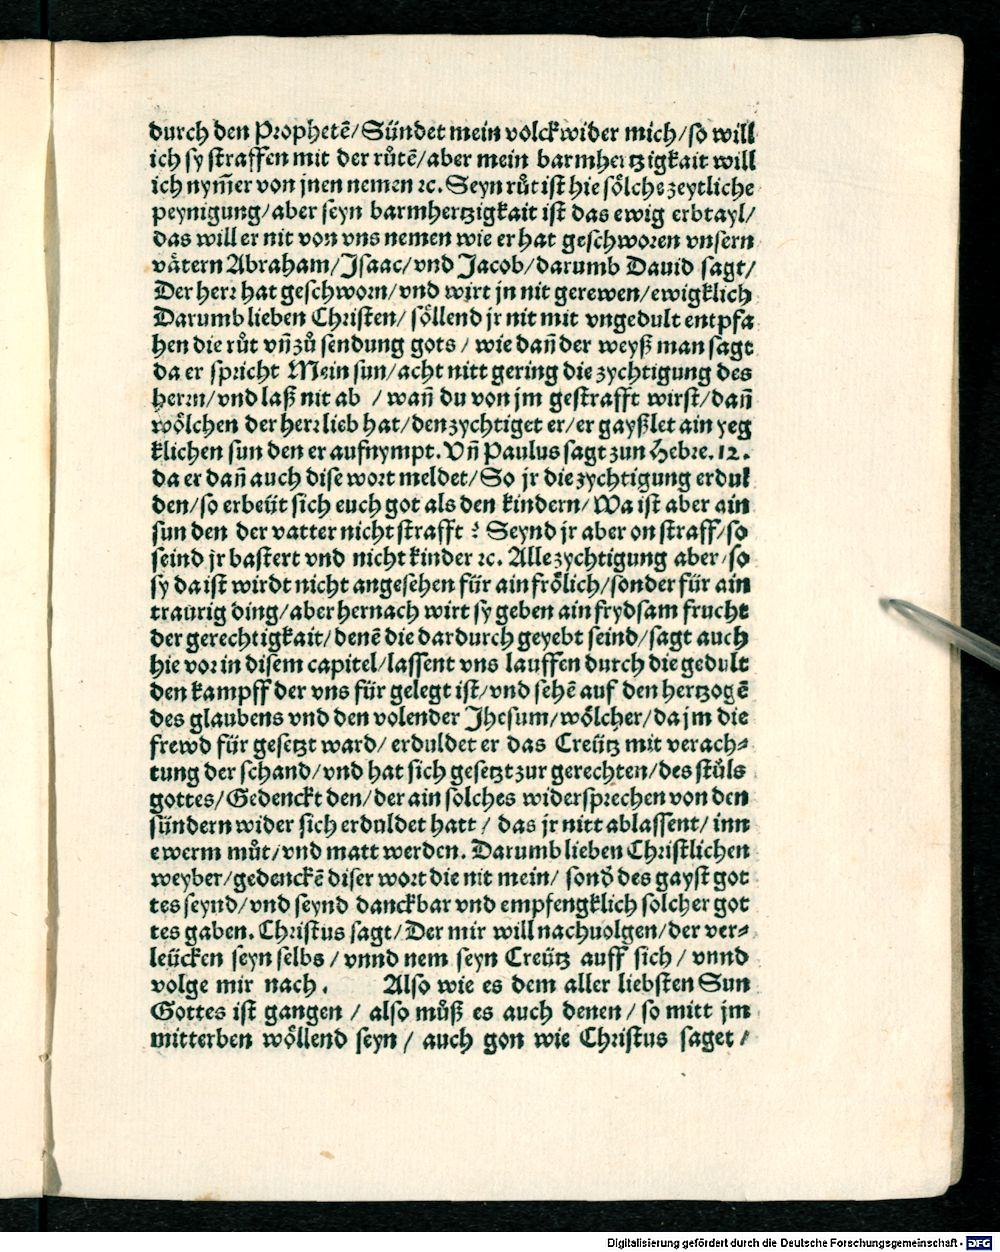 durch den Prophetē/Sündet mein volck wider mich/so will
ich sy straffen mit der růtē/aber mein barmhertzigkait will
ich nym̄er von jnen nemen ꝛc. Seyn růt ist hie sölche zeytliche
peynigung/aber seyn barmhertzigkait ist das ewig erbtayl/
das will er nit von vns nemen wie er hat geschworen vnsern
vätern Abraham/Jsaac/vnd Jacob/darumb Dauid sagt/
Der herr hat geschworn/vnd wirt jn nit gerewen/ewigklich
Darumb lieben Christen/ söllend jr nit mit vngedult entpfa
hen die růt vn̄ zů sendung gots / wie dan̄ der weyß man sagt
da er spricht Mein sun/acht nitt gering die zychtigung des
herrn/vnd laß nit ab / wan̄ du von jm gestrafft wirst/dan̄
wölchen der herr lieb hat/den zychtiget er/er gayßlet ain yeg
klichen sun den er aufnympt. Vn̄ Paulus sagt zun Hebre. 12.
da er dan̄ auch dise wort meldet/So jr die zychtigung erdul
den/so erbeüt sich euch got als den kindern/Wa ist aber ain
sun den der vatter nicht strafft ? Seynd jr aber on straff/so
seind jr bastert vnd nicht kinder ꝛc. Alle zychtigung aber/so
sy da ist wirdt nicht angesehen für ain frölich/sonder für ain
traurig ding/aber hernach wirt sy geben ain frydsam frucht
der gerechtigkait/denē die dardurch geyebt seind/sagt auch
hie vor in disem capitel/lassent vns lauffen durch die gedult
den kampff der vns für gelegt ist/vnd sehē auf den hertzogē
des glaubens vnd den volender Jhesum/wölcher/da jm die
frewd für gesetzt ward/ erduldet er das Creütz mit verach⸗
tung der schand/vnd hat sich gesetzt zur gerechten/des stůls
gottes/Gedenckt den/der ain solches widersprechen von den
sündern wider sich erduldet hatt / das jr nitt ablassent/ inn
ewerm můt/vnd matt werden. Darumb lieben Christlichen
weyber/gedenckē diser wort die nit mein/ sond̄ des gayst got
tes seynd/vnd seynd danckbar vnd empfengklich solcher got
tes gaben. Christus sagt/Der mir will nachuolgen/der ver⸗
leücken seyn selbs / vnnd nem seyn Creütz auff sich / vnnd
volge mir nach. Also wie es dem aller liebsten Sun
Gottes ist gangen / also můß es auch denen / so mitt jm
mitterben wöllend seyn / auch gon wie Christus saget /
Digitalisierung gefördert durch die Deutsche Forschungsgemeinschaft - DFG